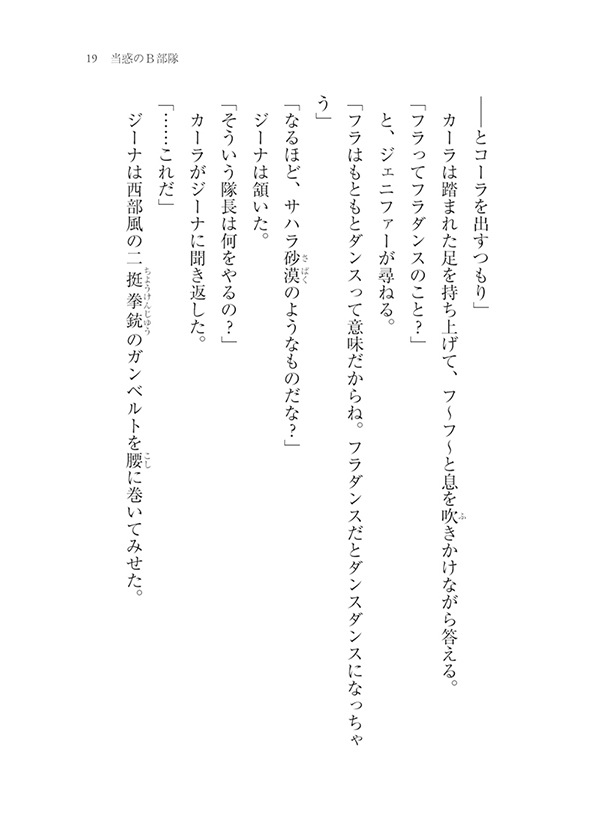 19 当惑のB部隊
――とコーラを出すつもり」
カーラは踏まれた足を持ち上げて、フ～フ～と息を吹きかけながら答える。
「フラってフラダンスのこと？」
と、ジェニファーが尋ねる。
「フラはもともとダンスって意味だからね。フラダンスだとダンスダンスになっちゃ
う」
「なるほど、サハラ砂漠のようなものだな？」
ジーナは頷いた。
「そういう隊長は何をやるの？」
カーラがジーナに聞き返した。
「……これだ」
ジーナは西部風の二挺拳銃のガンベルトを腰に巻いてみせた。